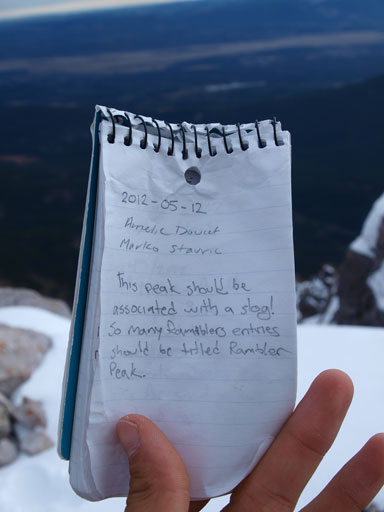 2012-05-12
Amelie
Marko Stavric
This peak should be
associated with a slog!
So many Ramblers entries
should be titled Rambler
Peak.